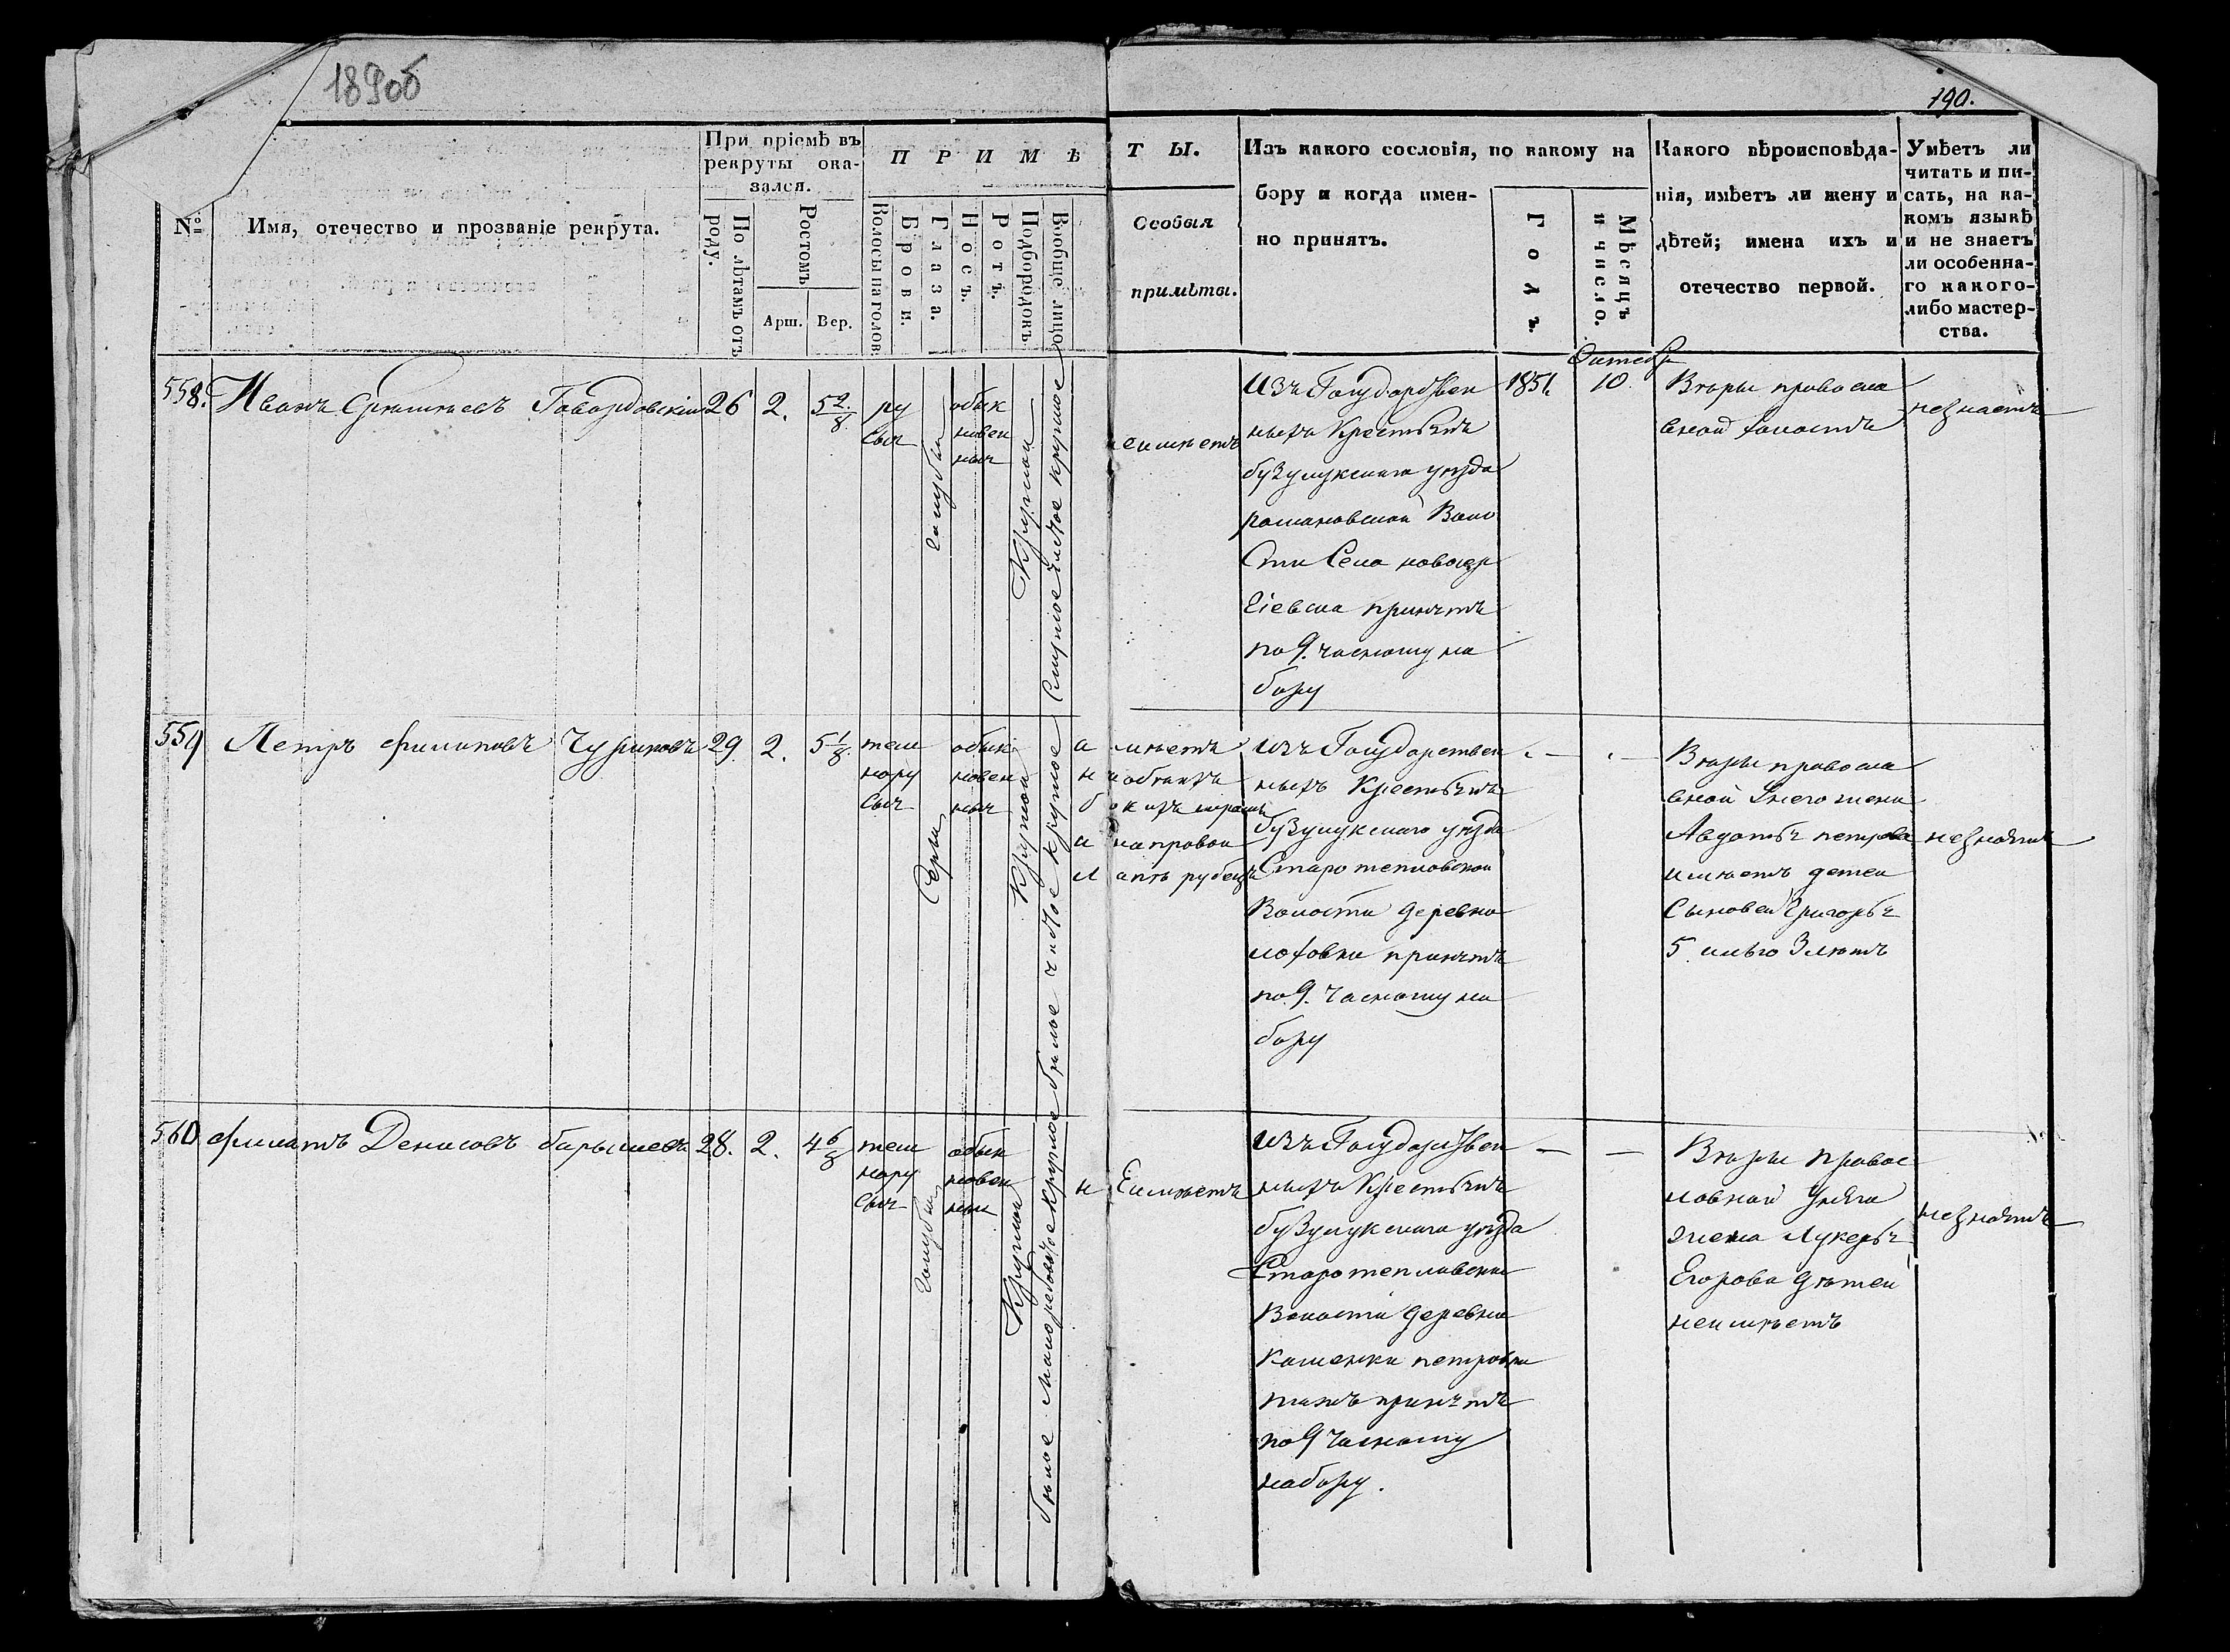 189об
190.
При пріемѣ въ рекруты ока-
зался.
П Р И М Ѣ Т Ы.
№
Имя, отечество и прозваніе рекрута.
По лѣтамъ отъ роду.
Ростомъ
Арш. Вер.
Волосы на голов.
Брови.
Глаза.
Носъ.
Ротъ.
Подбородокъ.
Вообще лицо
Особыя
примѣты.
Изъ какого сословія, по какому на
бору и когда имен-
но принятъ.
Годъ.
Мѣсяцъ
и число.
Какого вѣроисповѣда-
нія, имѣетъ ли жену и
дѣтей; имена ихъ и
отечество первой.
Умѣетъ ли
читать и пи-
сать, на ка-
комъ языкѣ
и не знаетъ
ли особенна-
го какого-
либо мастер-
ства.
558. Иванъ
26 2. 5 2/8
ру
сыя
голубыя
обык
новен
ныя
Круглой
Смуглое чистое круглое
неимѣетъ
Изъ Государствен
ныхъ Крестьянъ
бузулукскаго уѣзда
романовской Воло
сти Села новосер
гіевска принятъ
по 9. частному на
бору
1851.
Октября
10.
Вѣры правосла
вной холостъ
незнаетъ
559 Петръ Филиповъ
29 2. 5 1/8
тем
нору
сыя
Серыя
обык
новен
ныя
Круглой
белое чистое круглое
имѣетъ
на обѣихъ
бокахъ шрамы
и на правой
лапѣ рубецъ
изъ Государствен
ныхъ Крестьянъ
бузулукскаго уѣзда
Старотепловской
Волости деревни
принятъ
по 9. частному на
бору
Вѣры правосла
вной Унего жена
Авдотья петрова
имѣетъ детей
Сыновей Григорья
5. илью 3 лѣтъ
незнаетъ
560 Филатъ Денисовъ барышевъ
28. 2. 4 6/8
тем
нору
сыя
голубыя
обык
новен
ныя
Круглой
белое малорябоватое круглое
неимѣетъ
изъ Государствен
ныхъ Крестьянъ
бузулукскаго уѣзда
Старотепловской
Волости деревни
Каменки петровки
тожъ принятъ
по 9 частному
набору.
Вѣры правос
лавной Унего
жена Лукерья
Егорова дѣтей
неимѣетъ
незнаетъ